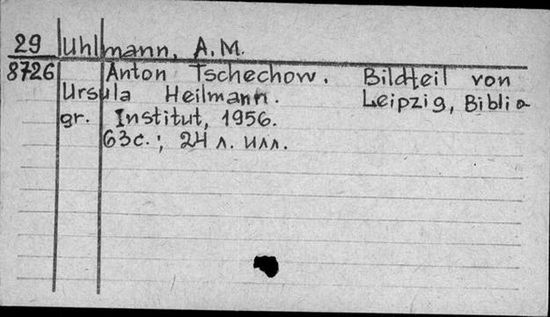 29 Uhlmann, A.M.
8726 Anton Tschechow. Bildteil von
Ursula Heilmann. Leipzig, Biblio
gr. Institut, 1956.
63с.; 24 л. илл.